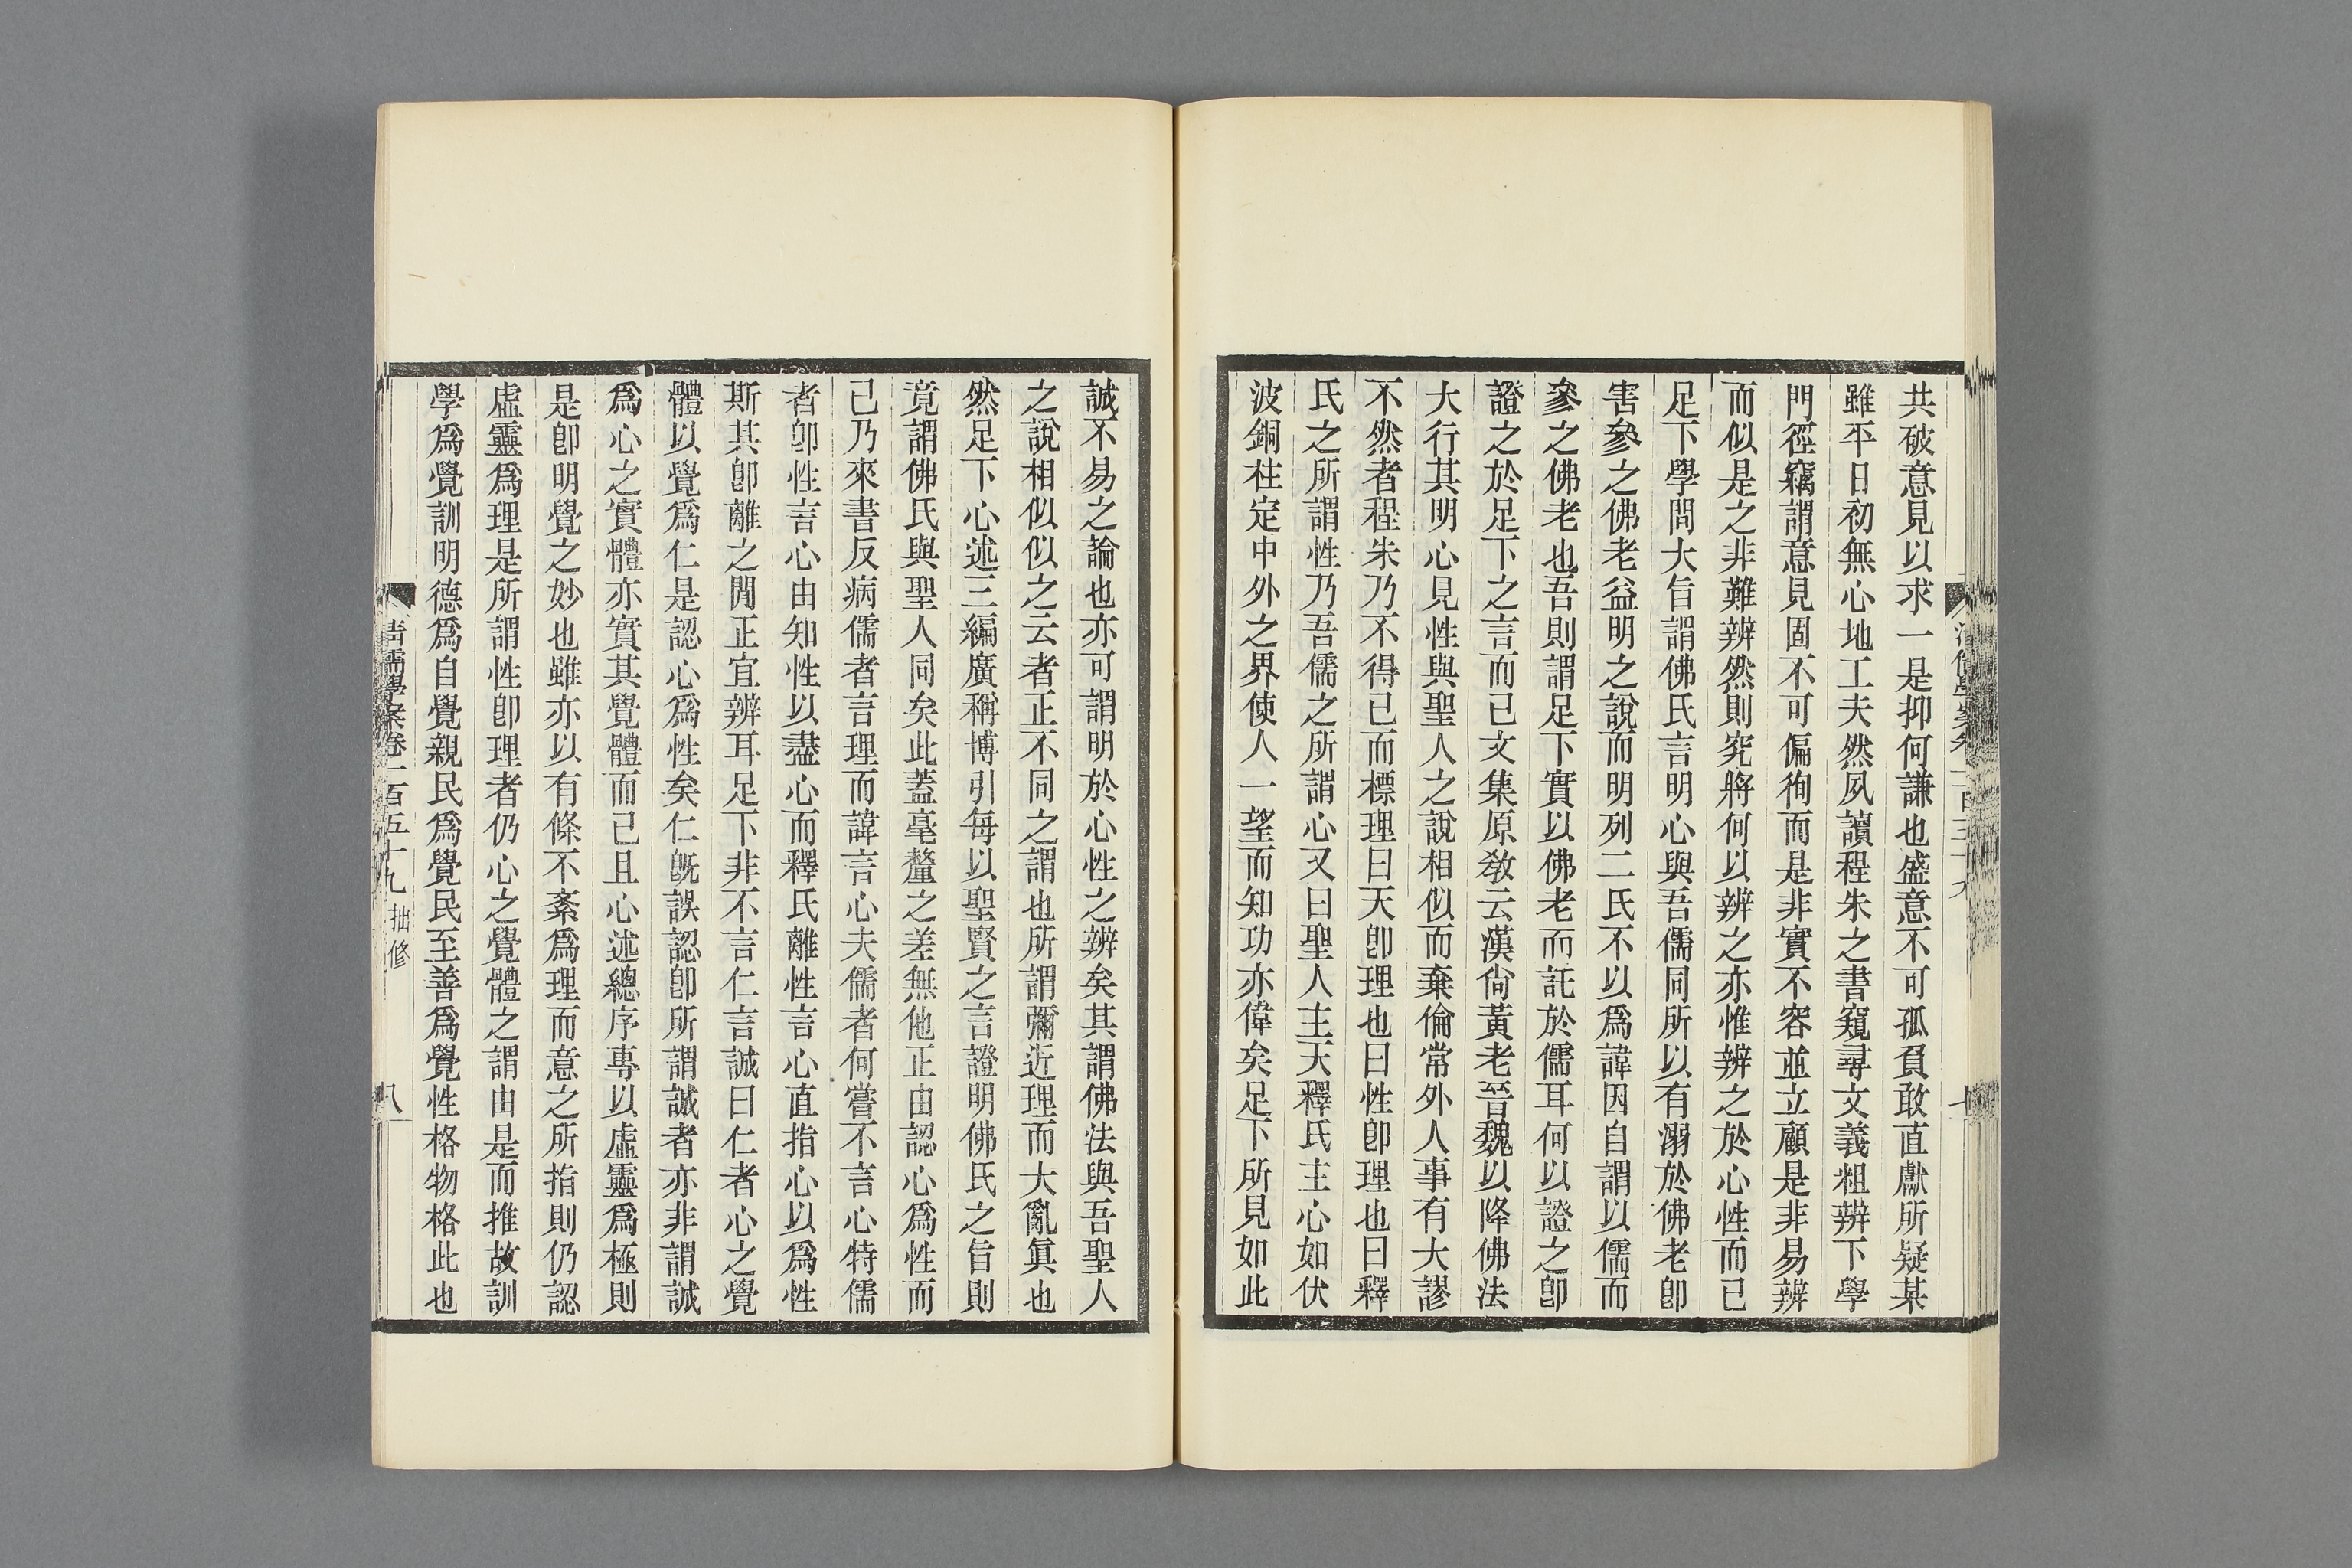 共破意見以求一是抑何謙也盛意不可孤負敢直獻所疑某
雖平日初無心地工夫然夙讀程朱之書窺尋文義粗辨下學
門徑竊謂意見固不可偏徇而是非實不容並立顧是非易辨
而似是之非難辨然則究將何以辨之亦惟辨之於心性而已
足下學問大旨謂佛氏言明心與吾儒同所以有溺於佛老卽
害參之佛老益明之說而明列二氏不以爲諱因自謂以儒而
參之佛老也吾則謂足下實以佛老而託於儒耳何以證之卽
證之於足下之言而已文集原敎云漢尙黃老晉魏以降佛法
大行其明心見性與聖人之說相似而棄倫常外人事有大謬
不然者程朱乃不得已而標理曰天卽理也曰性卽理也曰釋
氏之所謂性乃吾儒之所謂心又曰聖人主天釋氏主心如伏
波銅柱定中外之界使人一望而知功亦偉矣足下所見如此
誠不易之論也亦可謂明於心性之辨矣其謂佛法與吾聖人
之說相似似之云者正不同之謂也所謂彌近理而大亂眞也
然足下心述三編廣稱博引每以聖賢之言證明佛氏之旨則
竟謂佛氏與聖人同矣此蓋毫釐之差無他正由認心爲性而
已乃來書反病儒者言理而諱言心夫儒者何嘗不言心特儒
者卽性言心由知性以盡心而釋氏離性言心直指心以爲性
斯其卽離之閒正宜辨耳足下非不言仁言誠曰仁者心之覺
體以覺爲仁是認心爲性矣仁旣誤認卽所謂誠者亦非謂誠
爲心之實體亦實其覺體而已且心述總序專以虛靈爲極則
是卽明覺之妙也雖亦以有條不紊爲理而意之所指則仍認
虛靈爲理是所謂性卽理者仍心之覺體之謂由是而推故訓
學爲覺訓明德爲自覺親民爲覺民至善爲覺性格物格此也
清儒學案卷二百五十九 拙修 八